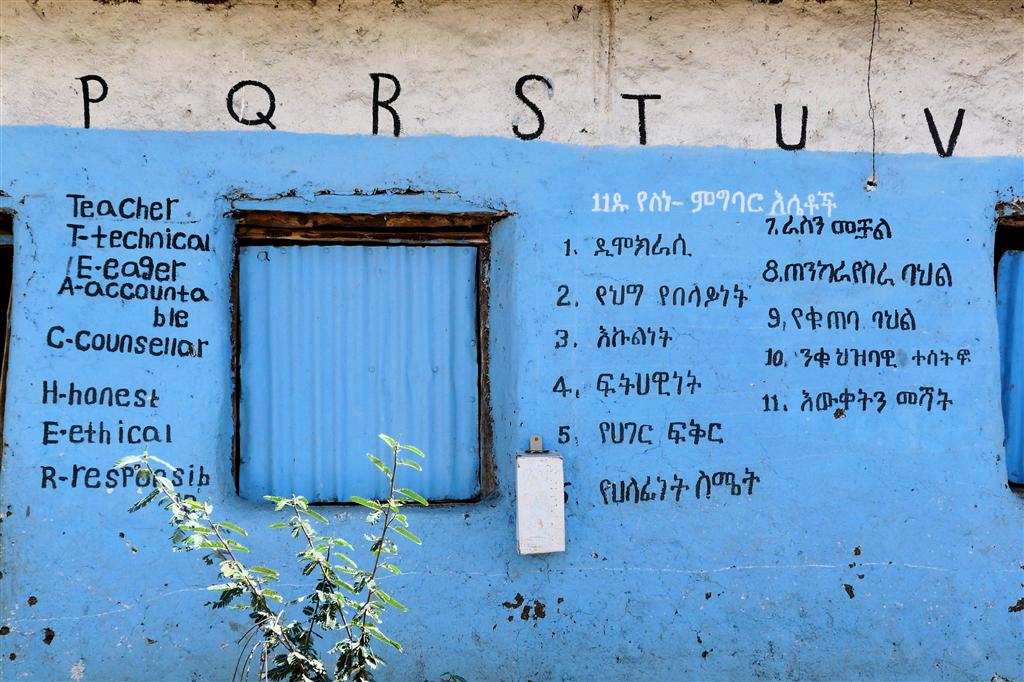 P Q R S T U V
Teacher
T-technical
E-eager
A-accounta
ble
C-counsellar
H-honest
E-ethical
R-responsib
a
11ዱ የስነ- ምግባር እሴቶች
1. ዲሞክራሲ
2. የህግ የበላይነት
3. እኩልነት
4. ፍትሀዊነት
5. የሀገር ፍቅር
የህለፊነት ስሜት
7. ራስን መቻል
8. ጠንካራ የስራ ባህል
9, የቁጠባ ባህል
10. ንቁ ህዝባዊ ተሳትፎ
11. እውቀትን መሻት